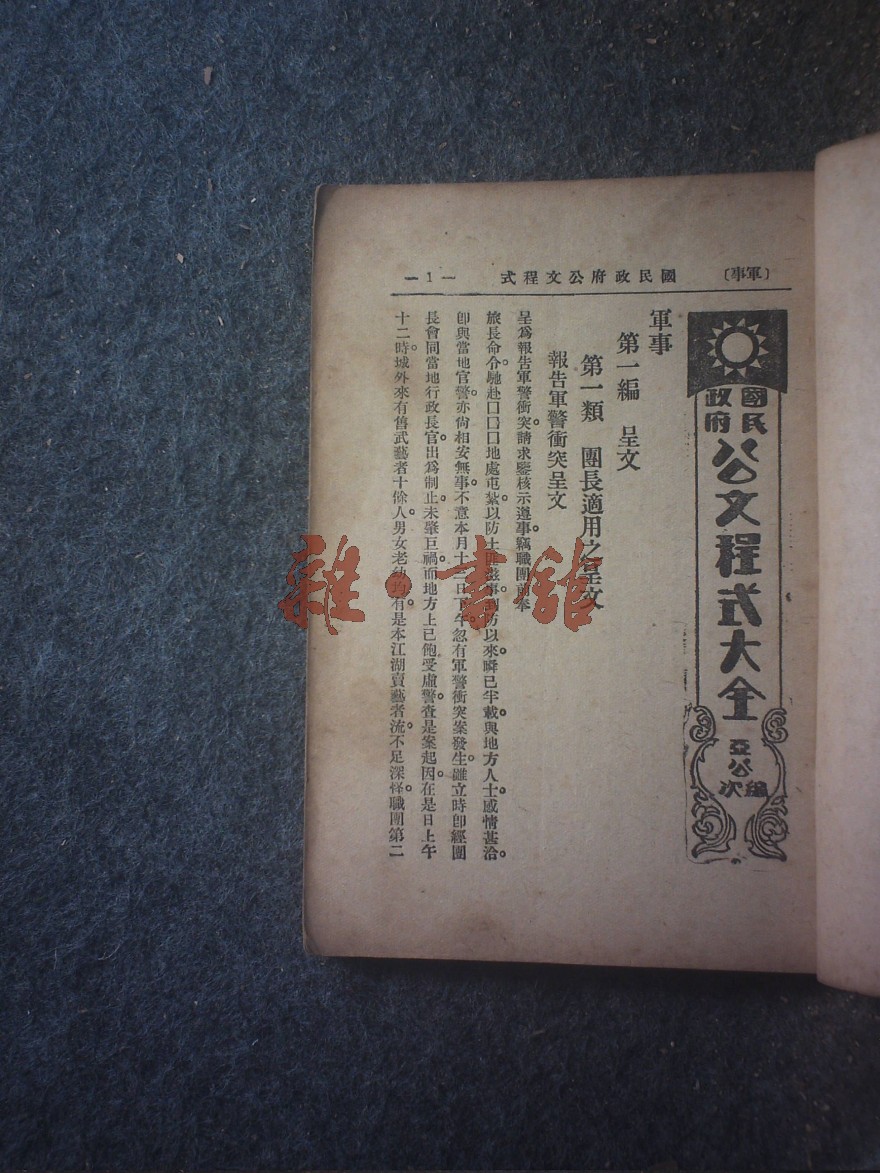 〔軍事〕 國民政府公文程式 一1一
國民政府
公文程式大全
亞公編次
軍事
第一編 呈文
第一類 團長適用之呈文
報告軍警衝突呈文
呈爲報告軍警衝突。請求鑒核示遵事。竊職團前奉
旅長命令。馳赴囗囗囗地處屯紮。以防土匪滋事。到防以來。瞬已半載。與地方人士。感情甚洽。
卽與當地官警。亦尙相安無事。不意本月十二日下午。忽有軍警衝突案發生。雖立時卽經團
長會同當地行政長官。出爲制止。未肇巨禍。而地方上已飽受虛警。查是案起因。在是日上午
十二時。城外來有舊武藝者十餘人。男女老幼均有。是本江湖賣藝者流。不足深怪。職團第二
雜·書館